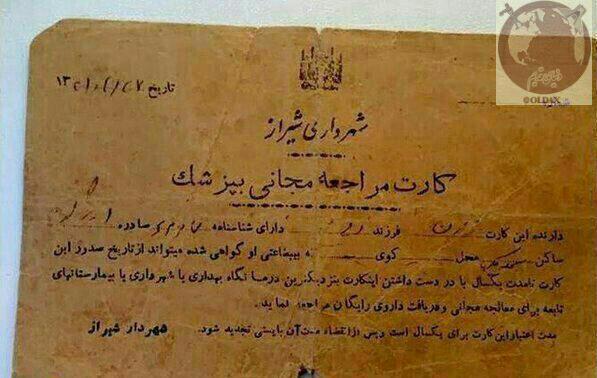 @OLDAX
تاریخ
شهرداری شیراز
کارت مراجعه مجانی بپزشك
دارنده این کارت فرزند دارای شناسنامه صادره
ساکن محل کوی به بیبضاعتی او گواهی شده میتواند از تاریخ صدور این
کارت تامدت یکسال با در دست داشتن اینکارت بنزدیکترین درمانگاه بهداری یا شهرداری یا بیمارستانهای
تابعه برای معالجه مجانی ودریافت داروی رایگان مراجعه نماید.
مدت اعتبار این کارت برای یکسال است وپس از انقضاء مدت آن بایستی تجدید شود. شهردار شیراز